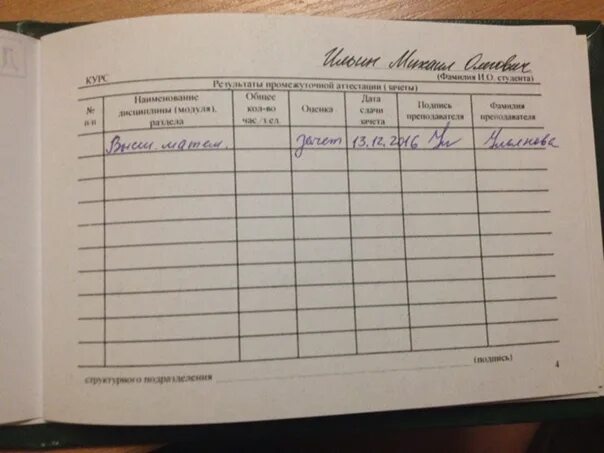 Ильин Михаил Олегович
КУРС
(Фамилия И.О. студента)
Результаты промежуточной аттестации (зачеты)
№ п-п Наименование дисциплины (модуля), раздела Общее кол-во час./з.ед. Оценка Дата сдачи зачета Подпись преподавателя Фамилия преподавателя
Высш. матем. зачет 13.12.2016 Ул Ульянова
(подпись)
структурного подразделения
4